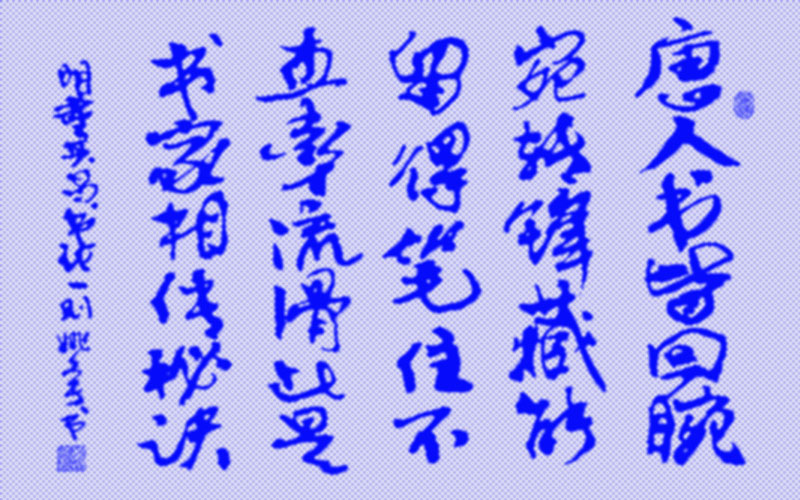 唐人书皆回腕
宛转锋藏能
留得笔住不
直率流滑此是
书家相传秘诀
明董其昌书一则姚书